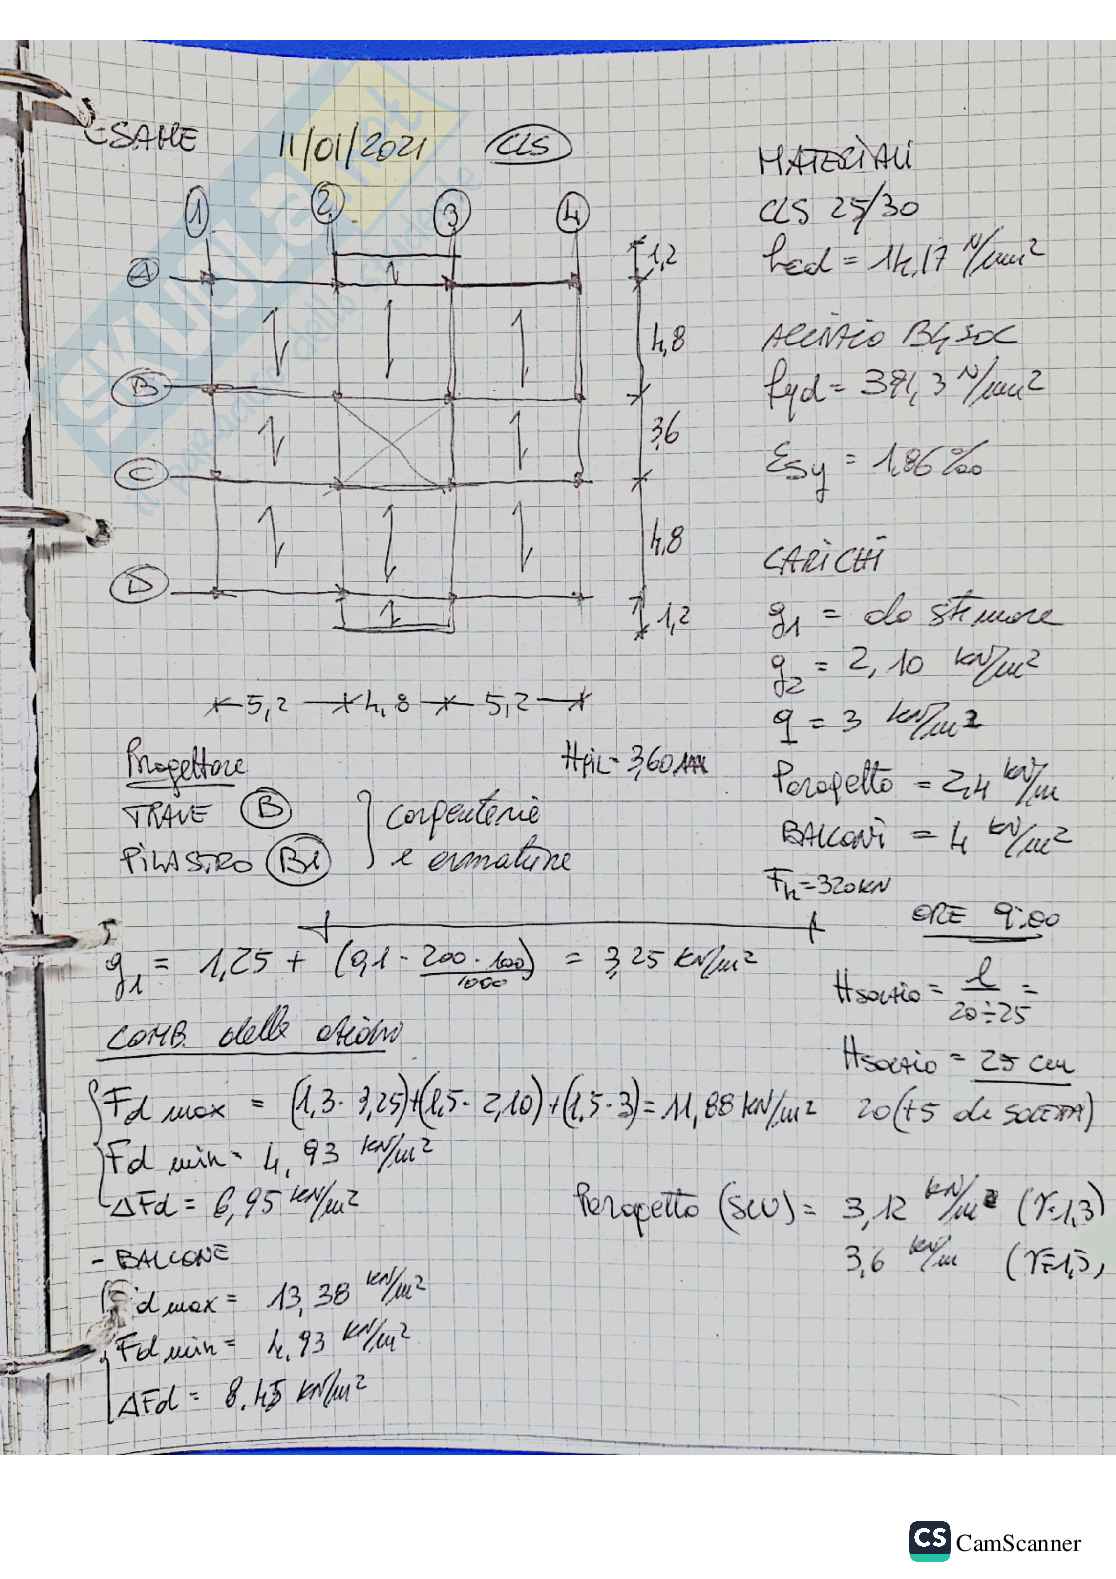 ESAME 11/01/2021 CLS
1 2 3 4
A
B
C
D
1,2
4,8
3,6
4,8
1,2
5,2 4,8 5,2
MATERIALI
CLS 25/30
fcd = 14,17 N/mm²
ACCIAIO B450C
fyd = 391,3 N/mm²
Esy = 1,86 ‰
CARICHI
g1 = da stimare
g2 = 2,10 kN/m²
q = 3 kN/m²
Parapetto = 2,4 kN/m
BALCONI = 4 kN/m²
Fh = 320 KN
ORE 9:00
Progettare
HPIL = 3,60
TRAVE B
PILASTRO B1
carpenterie
e armature
g1 = 1,25 + (0,1 · 200 · 100 / 1000) = 3,25 KN/m²
HSOLAIO = l / 20÷25 =
HSOLAIO = 25 cm
20(+5 di SOLETTA)
COMB. delle azioni
Fd max = (1,3 · 3,25)+(1,5 · 2,10)+(1,5 · 3) = 11,88 KN/m²
Fd min = 4,93 KN/m²
ΔFd = 6,95 KN/m²
Parapetto (SLU) = 3,12 KN/m (γ=1,3)
3,6 KN/m (γ=1,5)
- BALCONE
Fd max = 13,38 KN/m²
Fd min = 4,93 KN/m²
ΔFd = 8,45 KN/m²
CS CamScanner